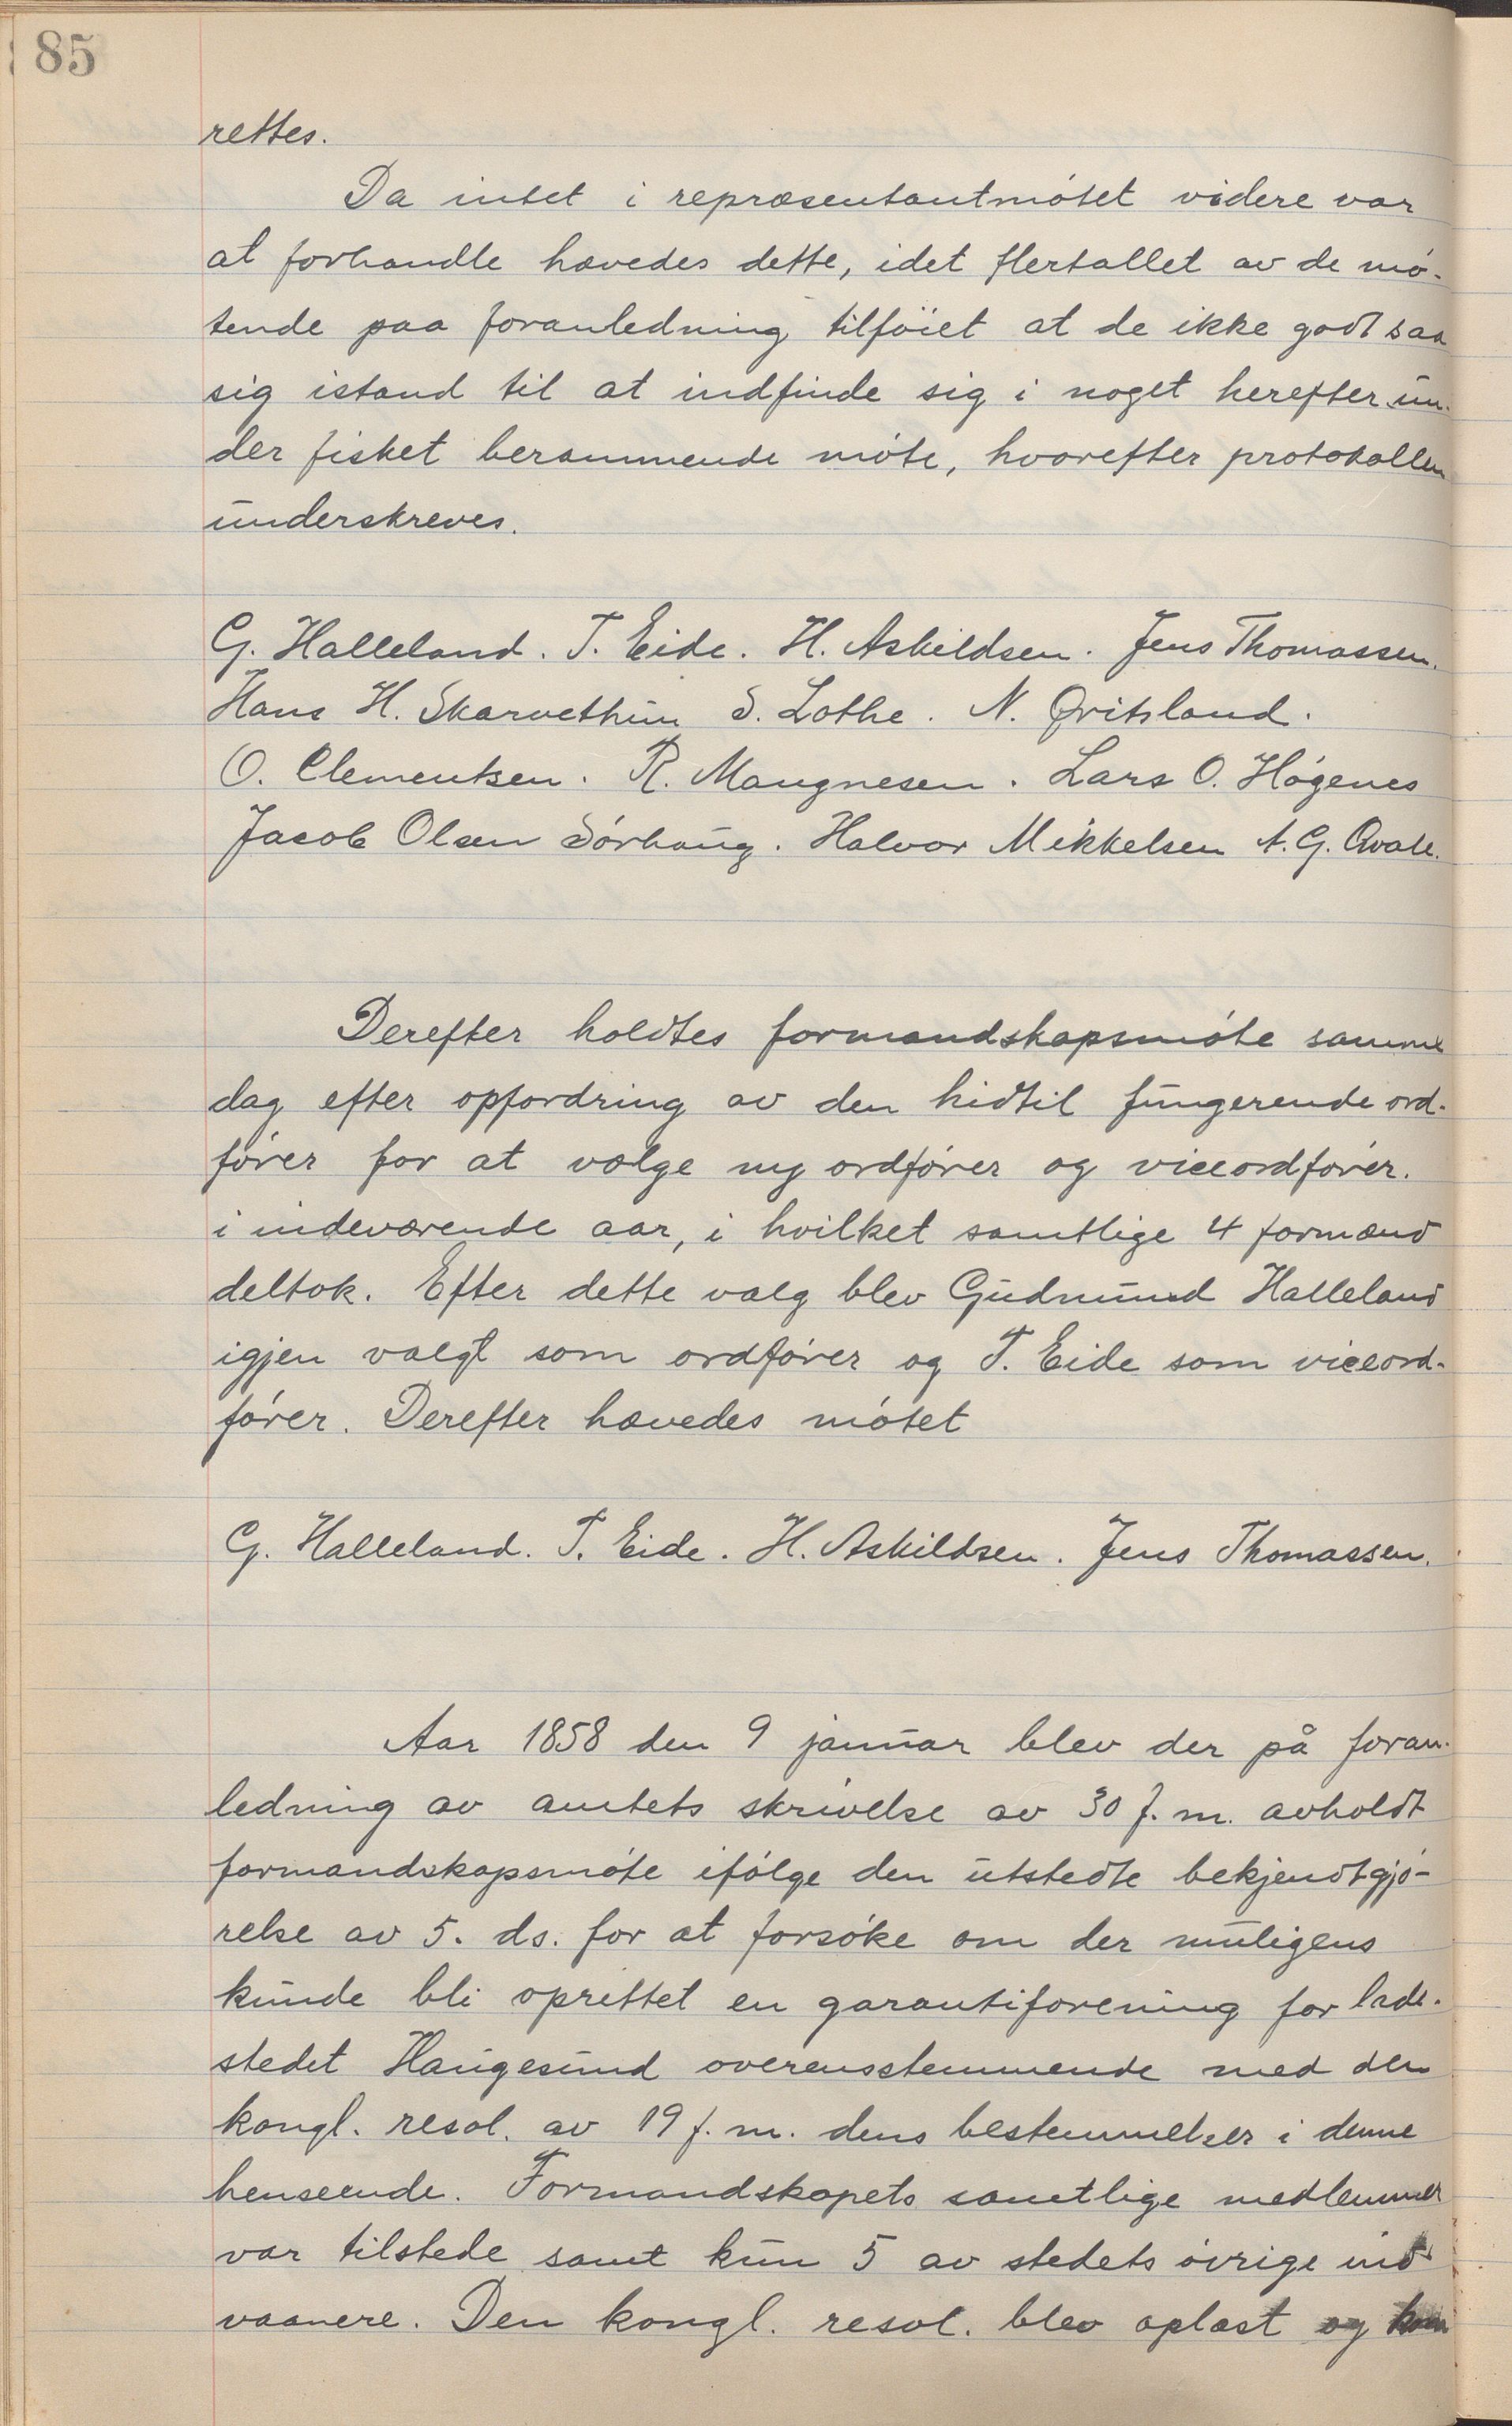 85
rettes.
Da intet i repræsentantmøtet videre var
at forhandle hævedes dette, idet flertallet av de mø-
tende paa foranledning tilføiet at de ikke godt saa
sig istand til at indfinde sig i noget herefter un-
der fisket berammende møte, hvorefter protokollen
underskreves.
G. Halleland. T. Eide. H. Askildsen. Jens Thomassen.
Hans H. Skarvethun S. Lothe. N. Qvitsland.
O. Clementsen. R. Mangnesen. Lars O. Høgenes
Jacob Olsen Sørhaug. Halvor Mikkelsen A. G. Qvale.
Derefter holdtes formandskapsmøte samme
dag efter opfordring av den hidtil fungerende ord-
fører for at vælge ny ordfører og viceordfører.
i indeværende aar, i hvilket samtlige 4 formænd
deltok. Efter dette valg blev Gudmund Halleland
igjen valgt som ordfører og T. Eide som viceord-
fører. Derefter hævedes møtet
G. Halleland. T. Eide. H. Askildsen. Jens Thomassen.
Aar 1858 den 9 januar blev der på foran-
ledning av amtets skrivelse av 30 f. m. avholdt
formandskapsmøte ifølge den utstedte bekjendtgjø-
relse av 5. ds. for at forsøke om der muligens
kunde bli oprettet en garantiforening for lade-
stedet Haugesund overensstemmende med den
kongl. resol. av 19 f. m. dens bestemmelser i denne
henseende. Formandskapets samtlige medlemmer
var tilstede samt kun 5 av stedets øvrige ind
vaanere. Den kongl. resol. blev oplæst og